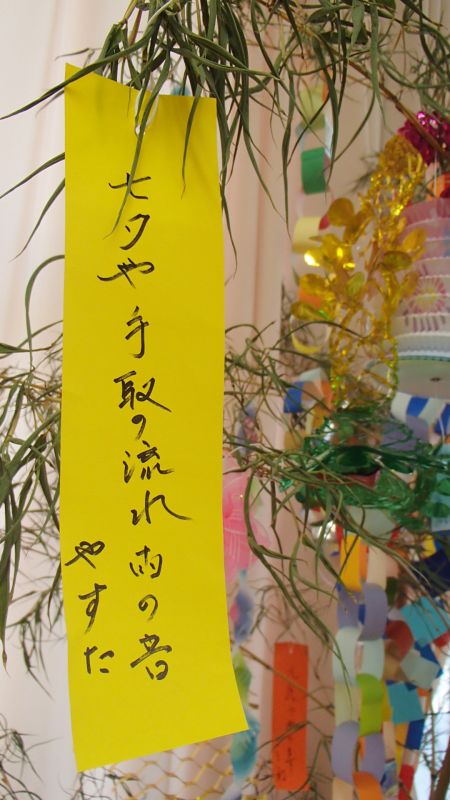 七夕や手取の流れ雨の音
やすた